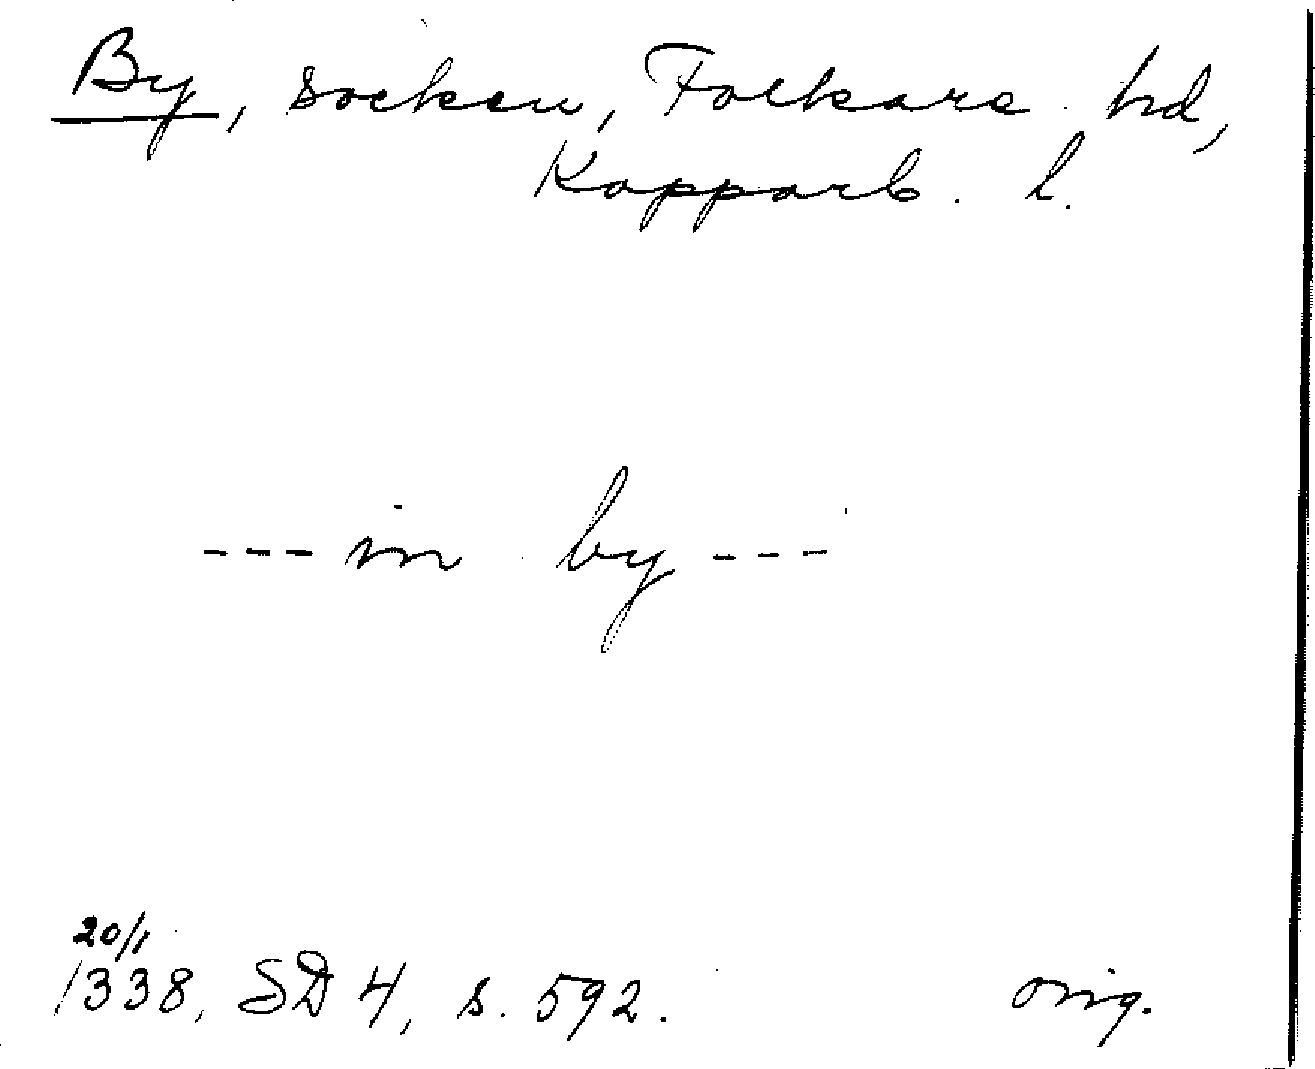 By, socken, Folkare hd,
Kopparb. l.
--- in by ---
20/1
1338, SD 4, s. 592. orig.